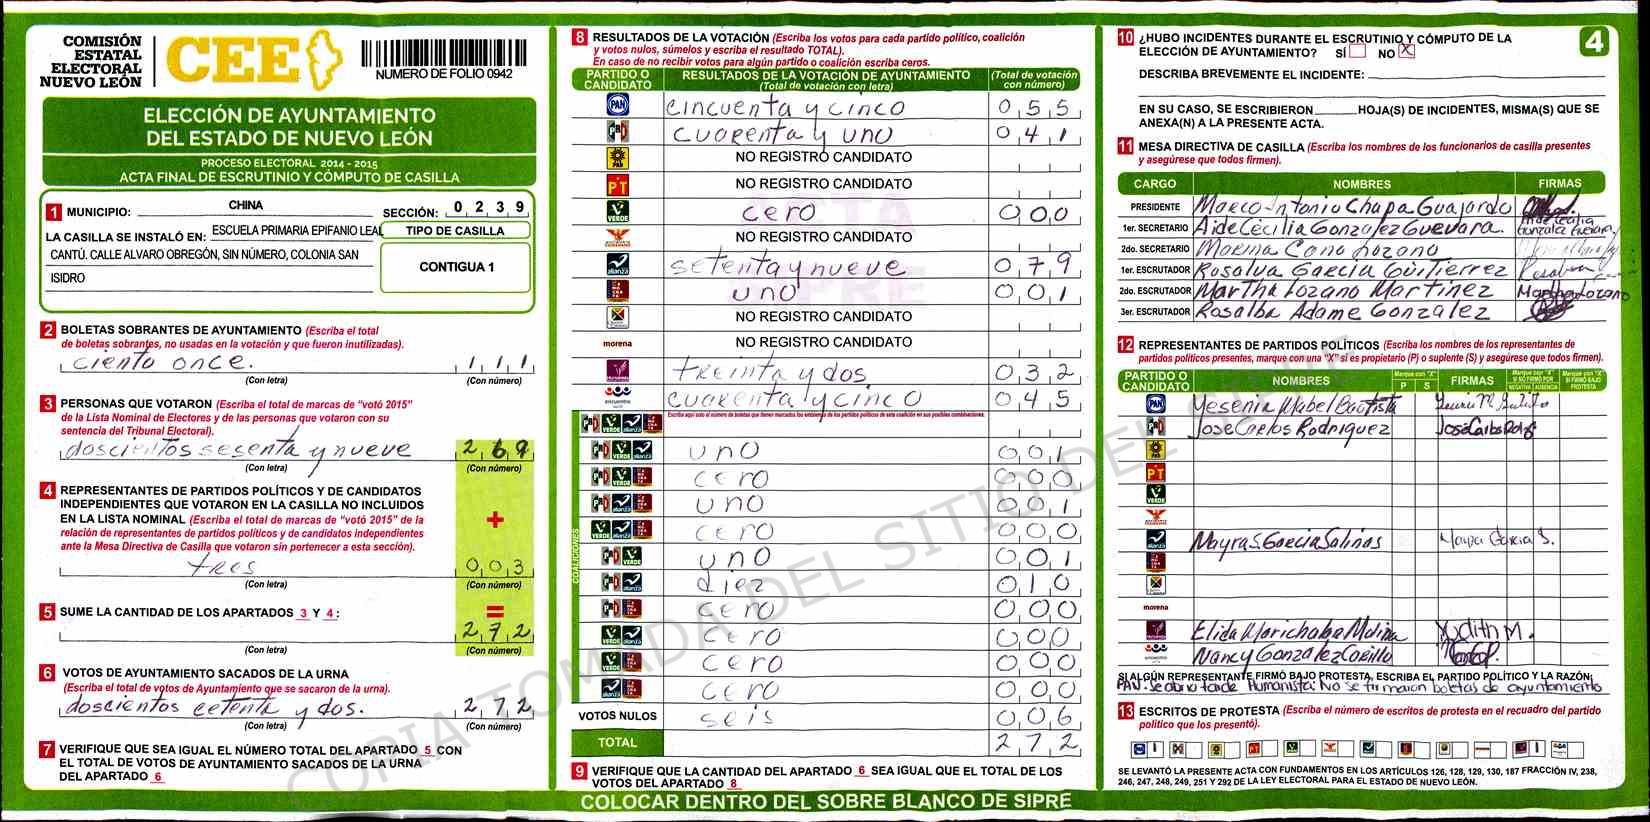 COMISIÓN
ESTATAL
ELECTORAL
NUEVO LEÓN
CEE
NUMERO DE FOLIO 0942
ELECCIÓN DE AYUNTAMIENTO
DEL ESTADO DE NUEVO LEÓN
PROCESO ELECTORAL 2014 - 2015
ACTA FINAL DE ESCRUTINIO Y CÓMPUTO DE CASILLA
1 MUNICIPIO: CHINA SECCIÓN: 0 2 3 9
LA CASILLA SE INSTALÓ EN: ESCUELA PRIMARIA EPIFANIO LEAL
CANTÚ. CALLE ALVARO OBREGÓN, SIN NÚMERO, COLONIA SAN
ISIDRO
TIPO DE CASILLA
CONTIGUA 1
2 BOLETAS SOBRANTES DE AYUNTAMIENTO (Escriba el total
de boletas sobrantes, no usadas en la votación y que fueron inutilizadas).
ciento once. 1 1 1
(Con letra) (Con número)
3 PERSONAS QUE VOTARON (Escriba el total de marcas de "votó 2015"
de la Lista Nominal de Electores y de las personas que votaron con su
sentencia del Tribunal Electoral).
doscientos sesenta y nueve 2 6 9
(Con letra) (Con número)
4 REPRESENTANTES DE PARTIDOS POLÍTICOS Y DE CANDIDATOS
INDEPENDIENTES QUE VOTARON EN LA CASILLA NO INCLUIDOS
EN LA LISTA NOMINAL (Escriba el total de marcas de "votó 2015" de la
relación de representantes de partidos políticos y de candidatos independientes
ante la Mesa Directiva de Casilla que votaron sin pertenecer a esta sección).
+
tres 0 0 3
(Con letra) (Con número)
5 SUME LA CANTIDAD DE LOS APARTADOS 3 Y 4: =
2 7 2
(Con letra) (Con número)
6 VOTOS DE AYUNTAMIENTO SACADOS DE LA URNA
(Escriba el total de votos de Ayuntamiento que se sacaron de la urna).
doscientos cetenta y dos. 2 7 2
(Con letra) (Con número)
7 VERIFIQUE QUE SEA IGUAL EL NÚMERO TOTAL DEL APARTADO 5 CON
EL TOTAL DE VOTOS DE AYUNTAMIENTO SACADOS DE LA URNA
DEL APARTADO 6
8 RESULTADOS DE LA VOTACIÓN (Escriba los votos para cada partido político, coalición
y votos nulos, súmelos y escriba el resultado TOTAL).
En caso de no recibir votos para algún partido o coalición escriba ceros.
PARTIDO O CANDIDATO RESULTADOS DE LA VOTACIÓN DE AYUNTAMIENTO (Total de votación con letra) (Total de votación con número)
PAN cincuenta y cinco 0 5 5
PRD cuarenta y uno 0 4 1
NO REGISTRÓ CANDIDATO
PT NO REGISTRÓ CANDIDATO
VERDE cero 0 0 0
NO REGISTRÓ CANDIDATO
alianza setenta y nueve 0 7 9
uno 0 0 1
NO REGISTRÓ CANDIDATO
morena NO REGISTRÓ CANDIDATO
treinta y dos 0 3 2
encuentro cuarenta y cinco 0 4 5
Escriba aquí solo el número de boletas que tienen marcados los emblemas de los partidos políticos de esta coalición en sus posibles combinaciones.
COALICIONES
uno 0 0 1
cero 0 0 0
uno 0 0 1
cero 0 0 0
uno 0 0 1
diez 0 1 0
cero 0 0 0
cero 0 0 0
cero 0 0 0
cero 0 0 0
VOTOS NULOS seis 0 0 6
TOTAL 2 7 2
9 VERIFIQUE QUE LA CANTIDAD DEL APARTADO 6 SEA IGUAL QUE EL TOTAL DE LOS
VOTOS DEL APARTADO 8
COLOCAR DENTRO DEL SOBRE BLANCO DE SIPRE
10 ¿HUBO INCIDENTES DURANTE EL ESCRUTINIO Y CÓMPUTO DE LA
ELECCIÓN DE AYUNTAMIENTO? SÍ NO X
4
DESCRIBA BREVEMENTE EL INCIDENTE:
EN SU CASO, SE ESCRIBIERON HOJA(S) DE INCIDENTES, MISMA(S) QUE SE
ANEXA(N) A LA PRESENTE ACTA.
11 MESA DIRECTIVA DE CASILLA (Escriba los nombres de los funcionarios de casilla presentes
y asegúrese que todos firmen).
CARGO NOMBRES FIRMAS
PRESIDENTE Marco Antonio Chapa Guajardo
1er. SECRETARIO Aide Cecilia Gonzalez Guevara. Aide Cecilia Gonzalez Guevara
2do. SECRETARIO Marina Cano Lozano
1er. ESCRUTADOR Rosalva Garcia Gutierrez
2do. ESCRUTADOR Martha Lozano Martinez Martha Lozano
3er. ESCRUTADOR Rosalba Adame Gonzalez
12 REPRESENTANTES DE PARTIDOS POLÍTICOS (Escriba los nombres de los representantes de
partidos políticos presentes, marque con una "X" si es propietario (P) o suplente (S) y asegúrese que todos firmen).
PARTIDO O CANDIDATO NOMBRES Marque con "X" P S FIRMAS Marque con "X" SI NO FIRMÓ POR NEGATIVA AUSENCIA Marque con "X" SI FIRMÓ BAJO PROTESTA
PAN Yesenia Mabel Bautista
Jose Carlos Rodriguez Jose Carlos Rdz
PT
VERDE
alianza Mayra S. Garcia Salinas Mayra Garcia S.
morena
Elida Marichaba Molina Yudith M.
Nancy Gonzalez Carillo
SI ALGÚN REPRESENTANTE FIRMÓ BAJO PROTESTA, ESCRIBA EL PARTIDO POLÍTICO Y LA RAZÓN:
PAN. Se abrio tarde Humanista: No se firmaron boletas de ayuntamiento
13 ESCRITOS DE PROTESTA (Escriba el número de escritos de protesta en el recuadro del partido
político que los presentó).
1 1
SE LEVANTÓ LA PRESENTE ACTA CON FUNDAMENTOS EN LOS ARTÍCULOS 126, 128, 129, 130, 187 FRACCIÓN IV, 238,
246, 247, 248, 249, 251 Y 292 DE LA LEY ELECTORAL PARA EL ESTADO DE NUEVO LEÓN.
ACTA
SIPRE
COPIA TOMADA DEL SITIO DEL SIPRE